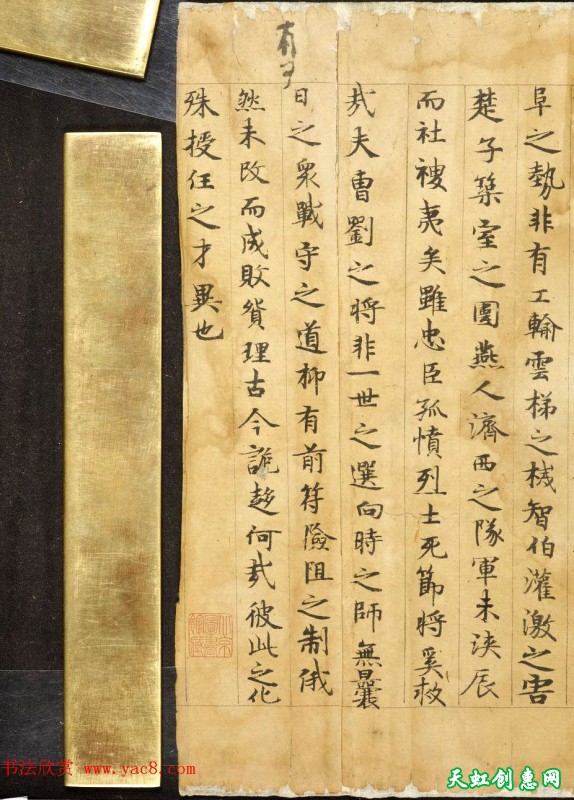 阜之勢非有工輸雲梯之械智伯灌激之害
楚子築室之圍燕人濟西之隊軍未浹辰
而社稷夷矣雖忠臣孤憤烈士死節將奚救
哉夫曹劉之將非一世之選向時之師無曩
日之衆戰守之道抑有前符險阻之制俄
然未改而成敗貿理古今詭趍何哉彼此之化
殊授任之才異也
书法欣赏 www.yac8.com
天虹创惠网